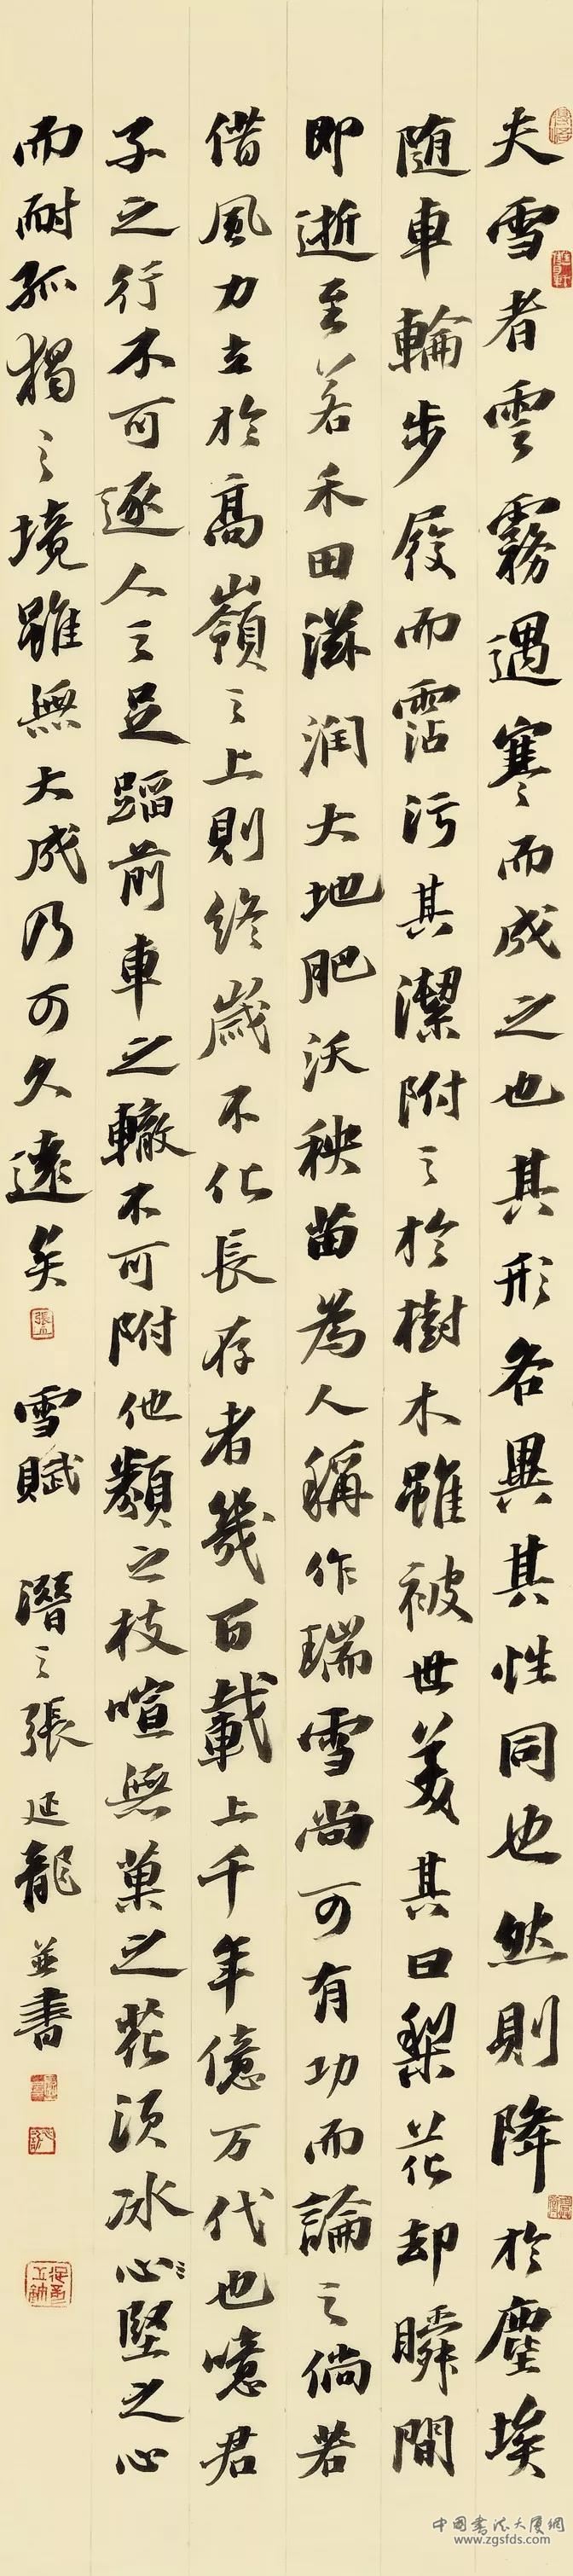 夫雪者雲霧遇寒而成之也其形各異其性同也然則降於塵埃
随車輪步履而霑污其潔附之於樹木雖被世美其曰梨花却瞬間
即逝至若禾田滋润大地肥沃秧苗為人稱作瑞雪尚可有功而論之倘若
借風力立於高嶺之上則終歲不化長存者幾百載上千年億万代也噫君
子之行不可逐人之足蹈前車之轍不可附他類之枝喧無菓之花須冰心堅之心
而耐孤獨之境雖無大成乃可久遠矣 雪賦 潛之張延龍並書
中国书法大厦網
www.zgsfds.com